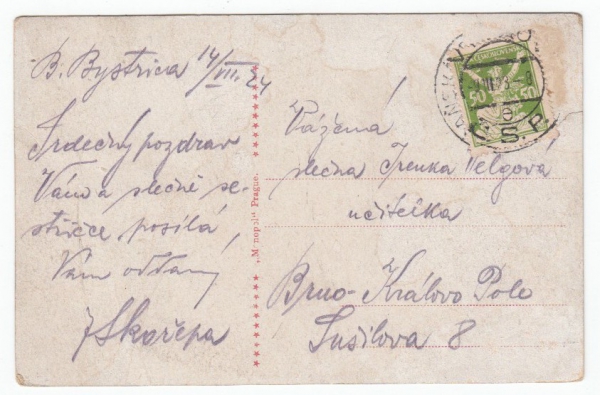 B. Bystrica 14/VII. 24
Srdečný pozdrav
Vám a slečně se-
střičce posílá,
Vám oddaný
JSkořepa
„Monopol" Prague.
Vážená
slečna Irenka Velgová
učitelka
Brno-Královo Pole
Sušilova 8
50
50
S.P.